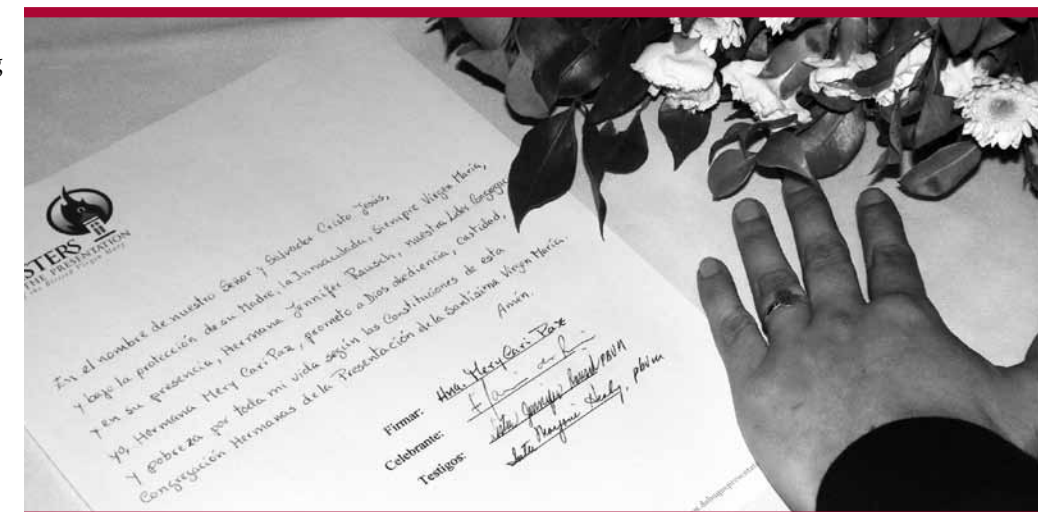 g
STERS
THE PRESENTATION
of the Blessed Virgin Mary
En el nombre de nuestro Señor y Salvador Cristo Jesús,
y bajo la protección de su Madre, la Inmaculada, Siempre Virgen María,
y en su presencia, Hermana Jennifer Rausch, nuestra Lider
yo, Hermana Mery Cari Paz, prometo a Dios obediencia, castidad,
y pobreza por toda mi vida según las Constituciones de esta
Congregación Hermanas de la Presentación de la Santísima Virgen María.
Amén.
Firmar: Hna. Mery Cari Paz
Celebrante:
Testigos: Jennifer Rausch PBVM
Marjorie Healy, pbvm